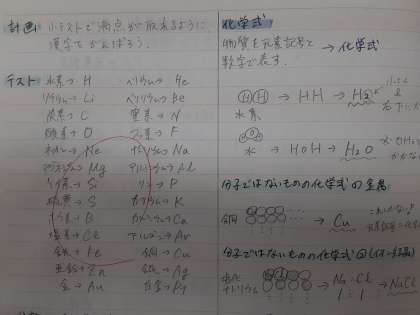 計画 小テストで満点が取れるように、
漢字でがんばろう。
テスト 水素→ H ヘリウム→ He
リチウム→ Li ベリリウム→ Be
炭素→ C 窒素→ N
酸素→ O フッ素→ F
ネオン→ Ne ナトリウム→ Na
マグネシウム→ Mg アルミニウム→ Al
ケイ素→ Si リン→ P
硫黄→ S カリウム→ K
ホウ素→ B カルシウム→ Ca
塩素→ Cl アルゴン→ Ar
鉄→ Fe 銅→ Cu
亜鉛→ Zn 銀→ Ag
金→ Au 白金→ Pt
化学式
物質を元素記号と → 化学式
数字で表す。
HH → HH → H2
水素
水 → HOH → H2O
分子ではないものの化学式 ① 金属
銅 → Cu
分子ではないものの化学式 ②
ナトリウム → Na Cl → NaCl
1 : 1